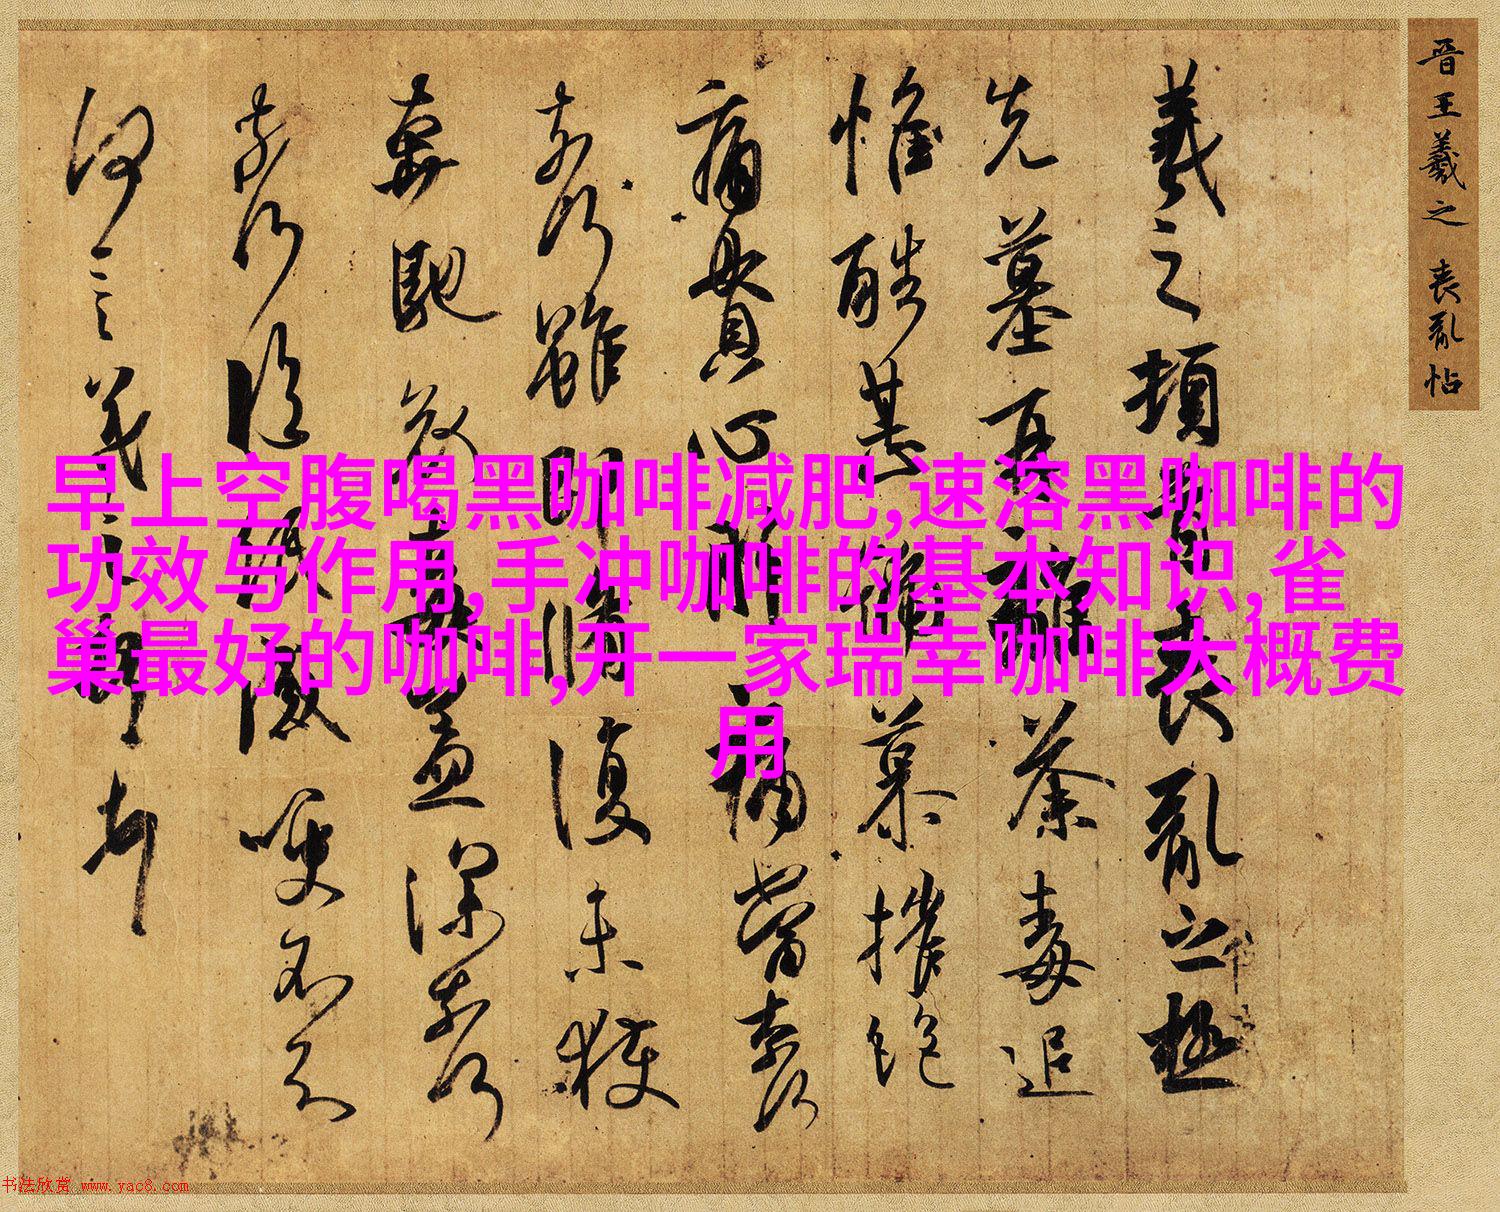 晋王羲之 喪亂帖
羲之頓首喪亂之極
先墓再離荼毒追
惟酷甚號慕摧絕
痛貫心肝痛當奈何
奈何雖即脩復未獲
奔馳哀毒益深奈何
奈何臨紙感哽不知
何言羲之頓首頓首
早上空腹喝黑咖啡减肥,速溶黑咖啡的
功效与作用,手冲咖啡的基本知识,雀
巢最好的咖啡,开一家瑞幸咖啡大概费
用
书法欣赏 www.yac8.com